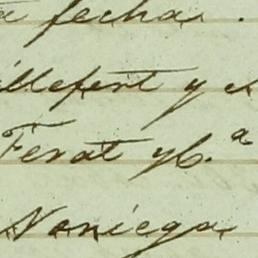 a fecha.
illefert y el
Ferat y C.ª
Noriega